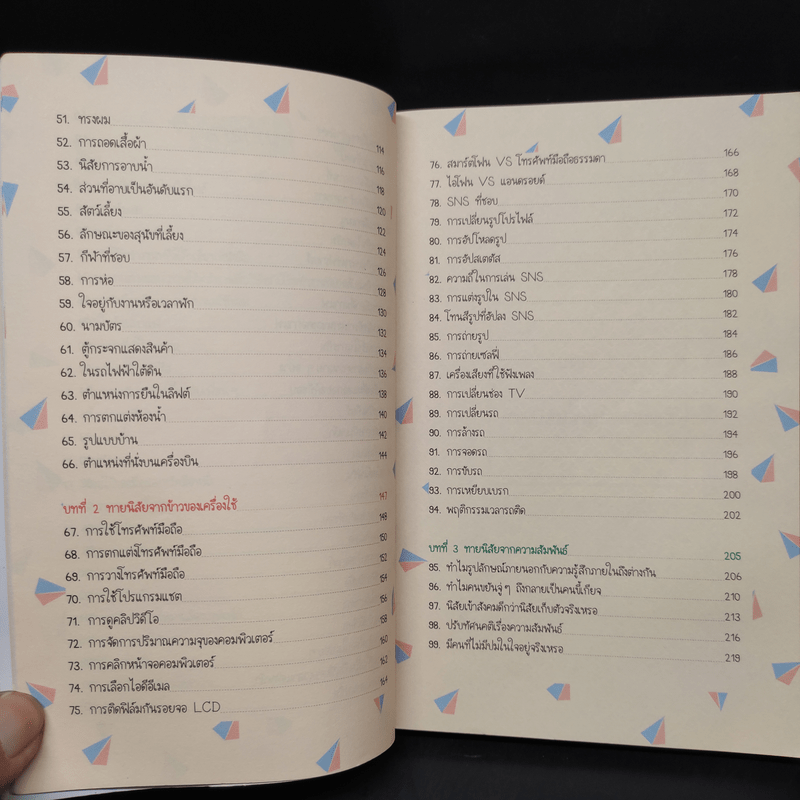 51. ทรงผม 114
52. การถอดเสื้อผ้า 116
53. นิสัยการอาบน้ำ 118
54. ส่วนที่อาบเป็นอันดับแรก 120
55. สัตว์เลี้ยง 122
56. ลักษณะของสุนัขที่เลี้ยง 124
57. กีฬาที่ชอบ 126
58. การห่อ 128
59. ใจอยู่กับงานหรือเวลาพัก 130
60. นามบัตร 132
61. ตู้กระจกแสดงสินค้า 134
62. ในรถไฟฟ้าใต้ดิน 136
63. ตำแหน่งการยืนในลิฟต์ 138
64. การตกแต่งห้องน้ำ 140
65. รูปแบบบ้าน 142
66. ตำแหน่งที่นั่งบนเครื่องบิน 144
บทที่ 2 ทายนิสัยจากข้าวของเครื่องใช้ 147
67. การใช้โทรศัพท์มือถือ 148
68. การตกแต่งโทรศัพท์มือถือ 150
69. การวางโทรศัพท์มือถือ 152
70. การใช้โปรแกรมแชต 154
71. การดูคลิปวิดีโอ 156
72. การจัดการปริมาณความจุของคอมพิวเตอร์ 158
73. การคลิกหน้าจอคอมพิวเตอร์ 160
74. การเลือกไอดีอีเมล 162
75. การติดฟิล์มกันรอยจอ LCD 164
76. สมาร์ตโฟน VS โทรศัพท์มือถือธรรมดา 166
77. ไอโฟน VS แอนดรอยด์ 168
78. SNS ที่ชอบ 170
79. การเปลี่ยนรูปโปรไฟล์ 172
80. การอัปโหลดรูป 174
81. การอัปสเตตัส 176
82. ความถี่ในการเล่น SNS 178
83. การแต่งรูปใน SNS 180
84. โทนสีรูปที่อัปลง SNS 182
85. การถ่ายรูป 184
86. การถ่ายเซลฟี่ 186
87. เครื่องเสียงที่ใช้ฟังเพลง 188
88. การเปลี่ยนช่อง TV 190
89. การเปลี่ยนรถ 192
90. การล้างรถ 194
91. การจอดรถ 196
92. การขับรถ 198
93. การเหยียบเบรก 200
94. พฤติกรรมเวลารถติด 202
บทที่ 3 ทายนิสัยจากความสัมพันธ์ 205
95. ทำไมรูปลักษณ์ภายนอกกับความรู้สึกภายในถึงต่างกัน 206
96. ทำไมคนขยันจู่ๆ ถึงกลายเป็นคนขี้เกียจ 210
97. นิสัยเข้าสังคมดีกว่านิสัยเก็บตัวจริงเหรอ 213
98. ปรับทัศนคติเรื่องความสัมพันธ์ 216
99. มีคนที่ไม่มีปมในใจอยู่จริงเหรอ 219